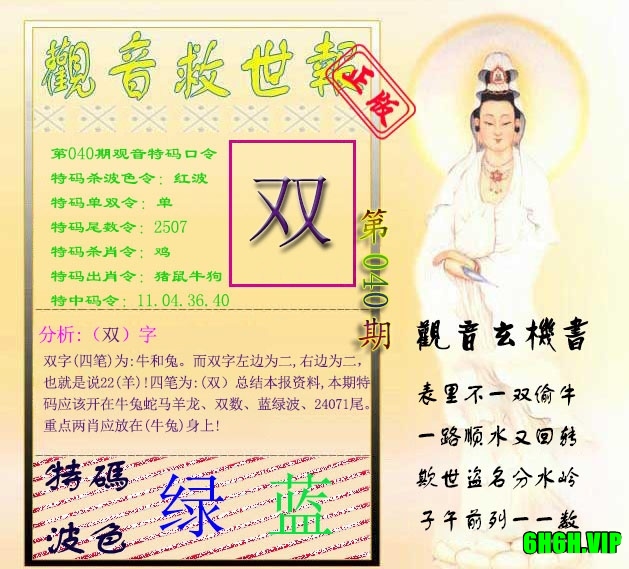 觀音救世報
正版
第040期观音特码口令
特码杀波色令：红波
特码单双令：单
特码尾数令：2507
特码杀肖令：鸡
特码出肖令：猪鼠牛狗
特中码令：11.04.36.40
双
第040期
分析:（双）字
双字(四笔)为:牛和兔。而双字左边为二,右边为二,
也就是说22(羊)!四笔为:(双）总结本报资料,本期特
码应该开在牛兔蛇马羊龙、双数、蓝绿波、24071尾。
重点两肖应放在(牛兔)身上!
特碼
波色
绿 蓝
觀音玄機書
表里不一双偷牛
一路顺水又回转
欺世盗名分水岭
子午前列一一数
6H6H.VIP